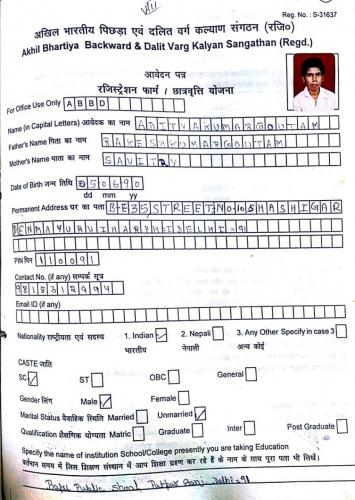 VIII
Reg. No. : S-31637
अखिल भारतीय पिछड़ा एवं दलित वर्ग कल्याण संगठन (रजि०)
Akhil Bhartiya Backward & Dalit Varg Kalyan Sangathan (Regd.)
आवेदन पत्र
रजिस्ट्रेशन फार्म / छात्रवृत्ति योजना
For Office Use Only A B B D
Name (in Capital Letters) आवेदक का नाम ADITYA KUMAR GOUTAM
Father's Name पिता का नाम RAKESH KUMAR GOUTAM
Mother's Name माता का नाम SAVITRY
Date of Birth जन्म तिथि 050690
dd mm yy
Permanent Address घर का पता B-E 35 STREET NO-10 SHASHI GAR
DEN MAYUR VIHAR PH-I DELHI-91
PIN पिन 110091
Contact No. (if any) सम्पर्क सूत्र
9818312494
Email ID (if any)
Nationality राष्ट्रीयता एवं सदस्य 1. Indian 2. Nepali 3. Any Other Specify in case 3
भारतीय नेपाली अन्य कोई
CASTE जाति
SC ST OBC General
Gender लिंग Male Female
Marital Status वैवाहिक स्थिति Married Unmarried
Qualification शैक्षणिक योग्यता Matric Graduate Inter Post Graduate
Specify the name of institution School/College presently you are taking Education
वर्तमान समय में जिस शिक्षण संस्थान में आप शिक्षा ग्रहण कर रहे हैं के नाम के साथ पूरा पता भी लिखें।
Public School Delhi-91